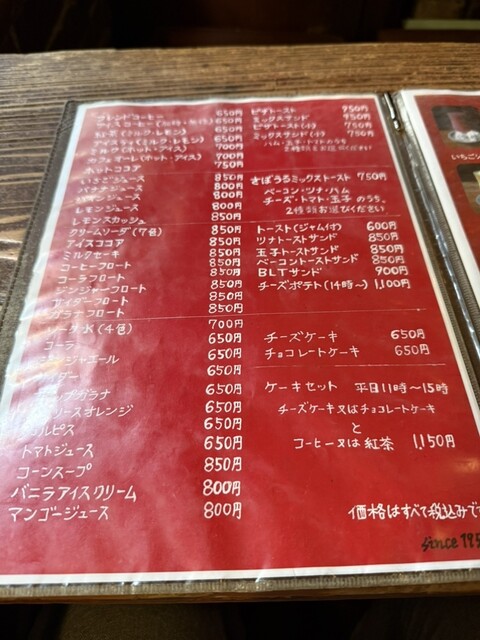 ブレンドコーヒー 650円
アイスコーヒー 650円
紅茶(ミルク・レモン) 650円
アイスティ(ミルク・レモン) 650円
ミルク(ホット・アイス) 700円
カフェオーレ(ホット・アイス) 700円
ホットココア 750円
いちごジュース 850円
バナナジュース 800円
ジュース 800円
レモンジュース 850円
レモンスカッシュ 850円
クリームソーダ(7色) 850円
アイスココア 850円
ミルクセーキ 850円
コーヒーフロート 850円
コーラフロート 850円
ジンジャーフロート 850円
サイダーフロート 850円
ガラナフロート 850円
ソーダ水(4色) 700円
コーラ 650円
ジンジャエール 650円
サイダー 650円
ガラナ 650円
オレンジ 650円
カルピス 650円
トマトジュース 650円
コーンスープ 850円
バニラアイスクリーム 800円
マンゴージュース 800円
ピザトースト 950円
ミックスサンド 950円
ピザトースト(小) 750円
ミックスサンド(小) 750円
ハム・玉子・トマトのうち
2種類お選びください
さぼうるミックストースト 750円
ベーコン・ツナ・ハム
チーズ・トマト・玉子のうち、
2種類お選びください
トースト(ジャム付) 600円
ツナトーストサンド 850円
玉子トーストサンド 850円
ベーコントーストサンド 850円
BLTサンド 900円
チーズポテト(14時〜) 1,100円
チーズケーキ 650円
チョコレートケーキ 650円
ケーキセット 平日11時〜15時
チーズケーキ又はチョコレートケーキ
と
コーヒー又は紅茶 1,150円
価格はすべて税込みで
since 195
いちごジ